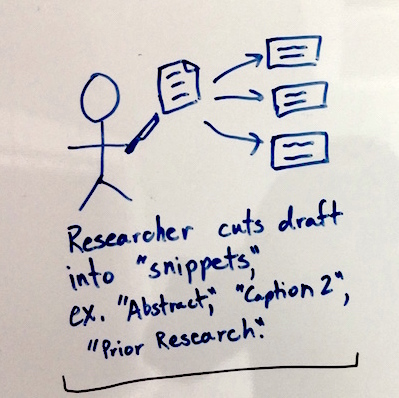 Researcher cuts draft
into "snippets,"
ex. "Abstract," "Caption 2",
"Prior Research."